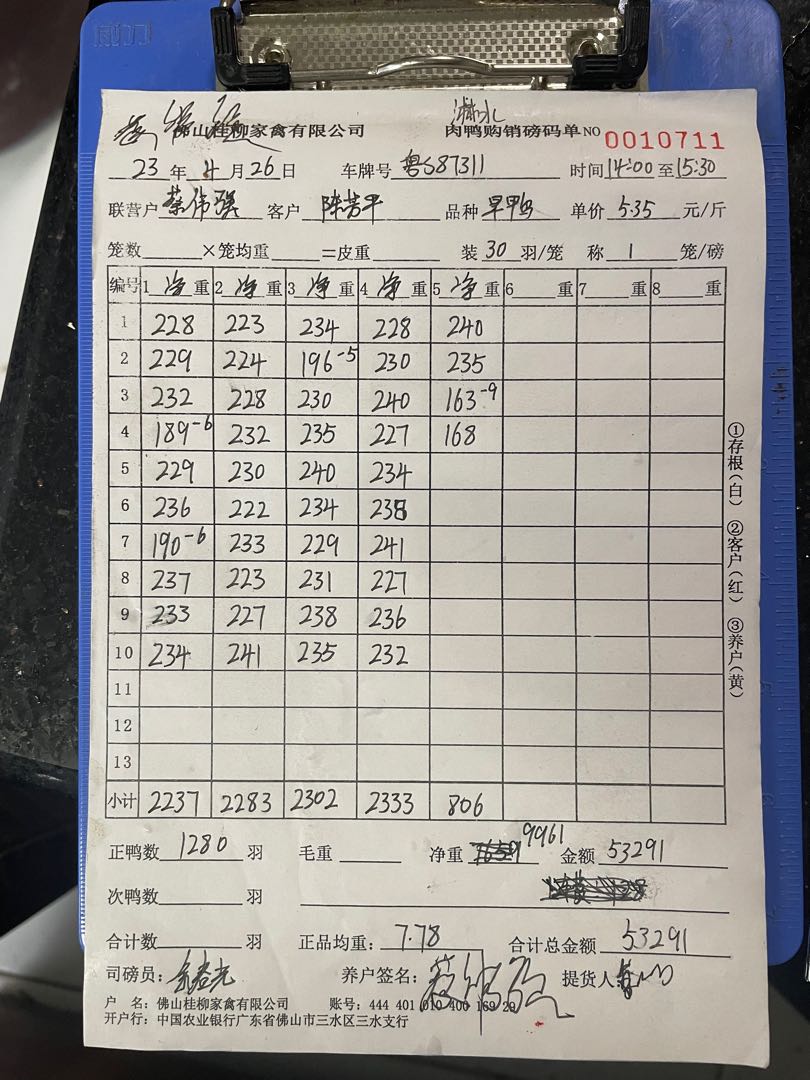 佛山桂柳家禽有限公司 淋水 肉鸭购销磅码单 NO 0010711
23 年 4 月 26 日 车牌号 粤S87311 时间 14:00 至 15:30
联营户 蔡伟强 客户 陈芳平 品种 旱鸭 单价 5.35 元/斤
笼数 ×笼均重 =皮重 装 30 羽/笼 称 1 笼/磅
编号 1 净 重 2 净 重 3 净 重 4 净 重 5 净 重 6 重 7 重 8 重
1 228 223 234 228 240
2 229 224 196-5 230 235
3 232 228 230 240 163-9
4 189-6 232 235 227 168
5 229 230 240 234
6 236 222 234 238
7 190-6 233 229 241
8 237 223 231 227
9 233 227 238 236
10 234 241 235 232
11
12
13
小计 2237 2283 2302 2333 806
正鸭数 1280 羽 毛重 净重 9961 金额 53291
次鸭数 羽
合计数 羽 正品均重: 7.78 合计总金额 53291
司磅员: 养户签名: 提货人:
户 名: 佛山桂柳家禽有限公司 账号: 444 401 010 400 169 29
开户行: 中国农业银行广东省佛山市三水区三水支行
①存根(白) ②客户(红) ③养户(黄)